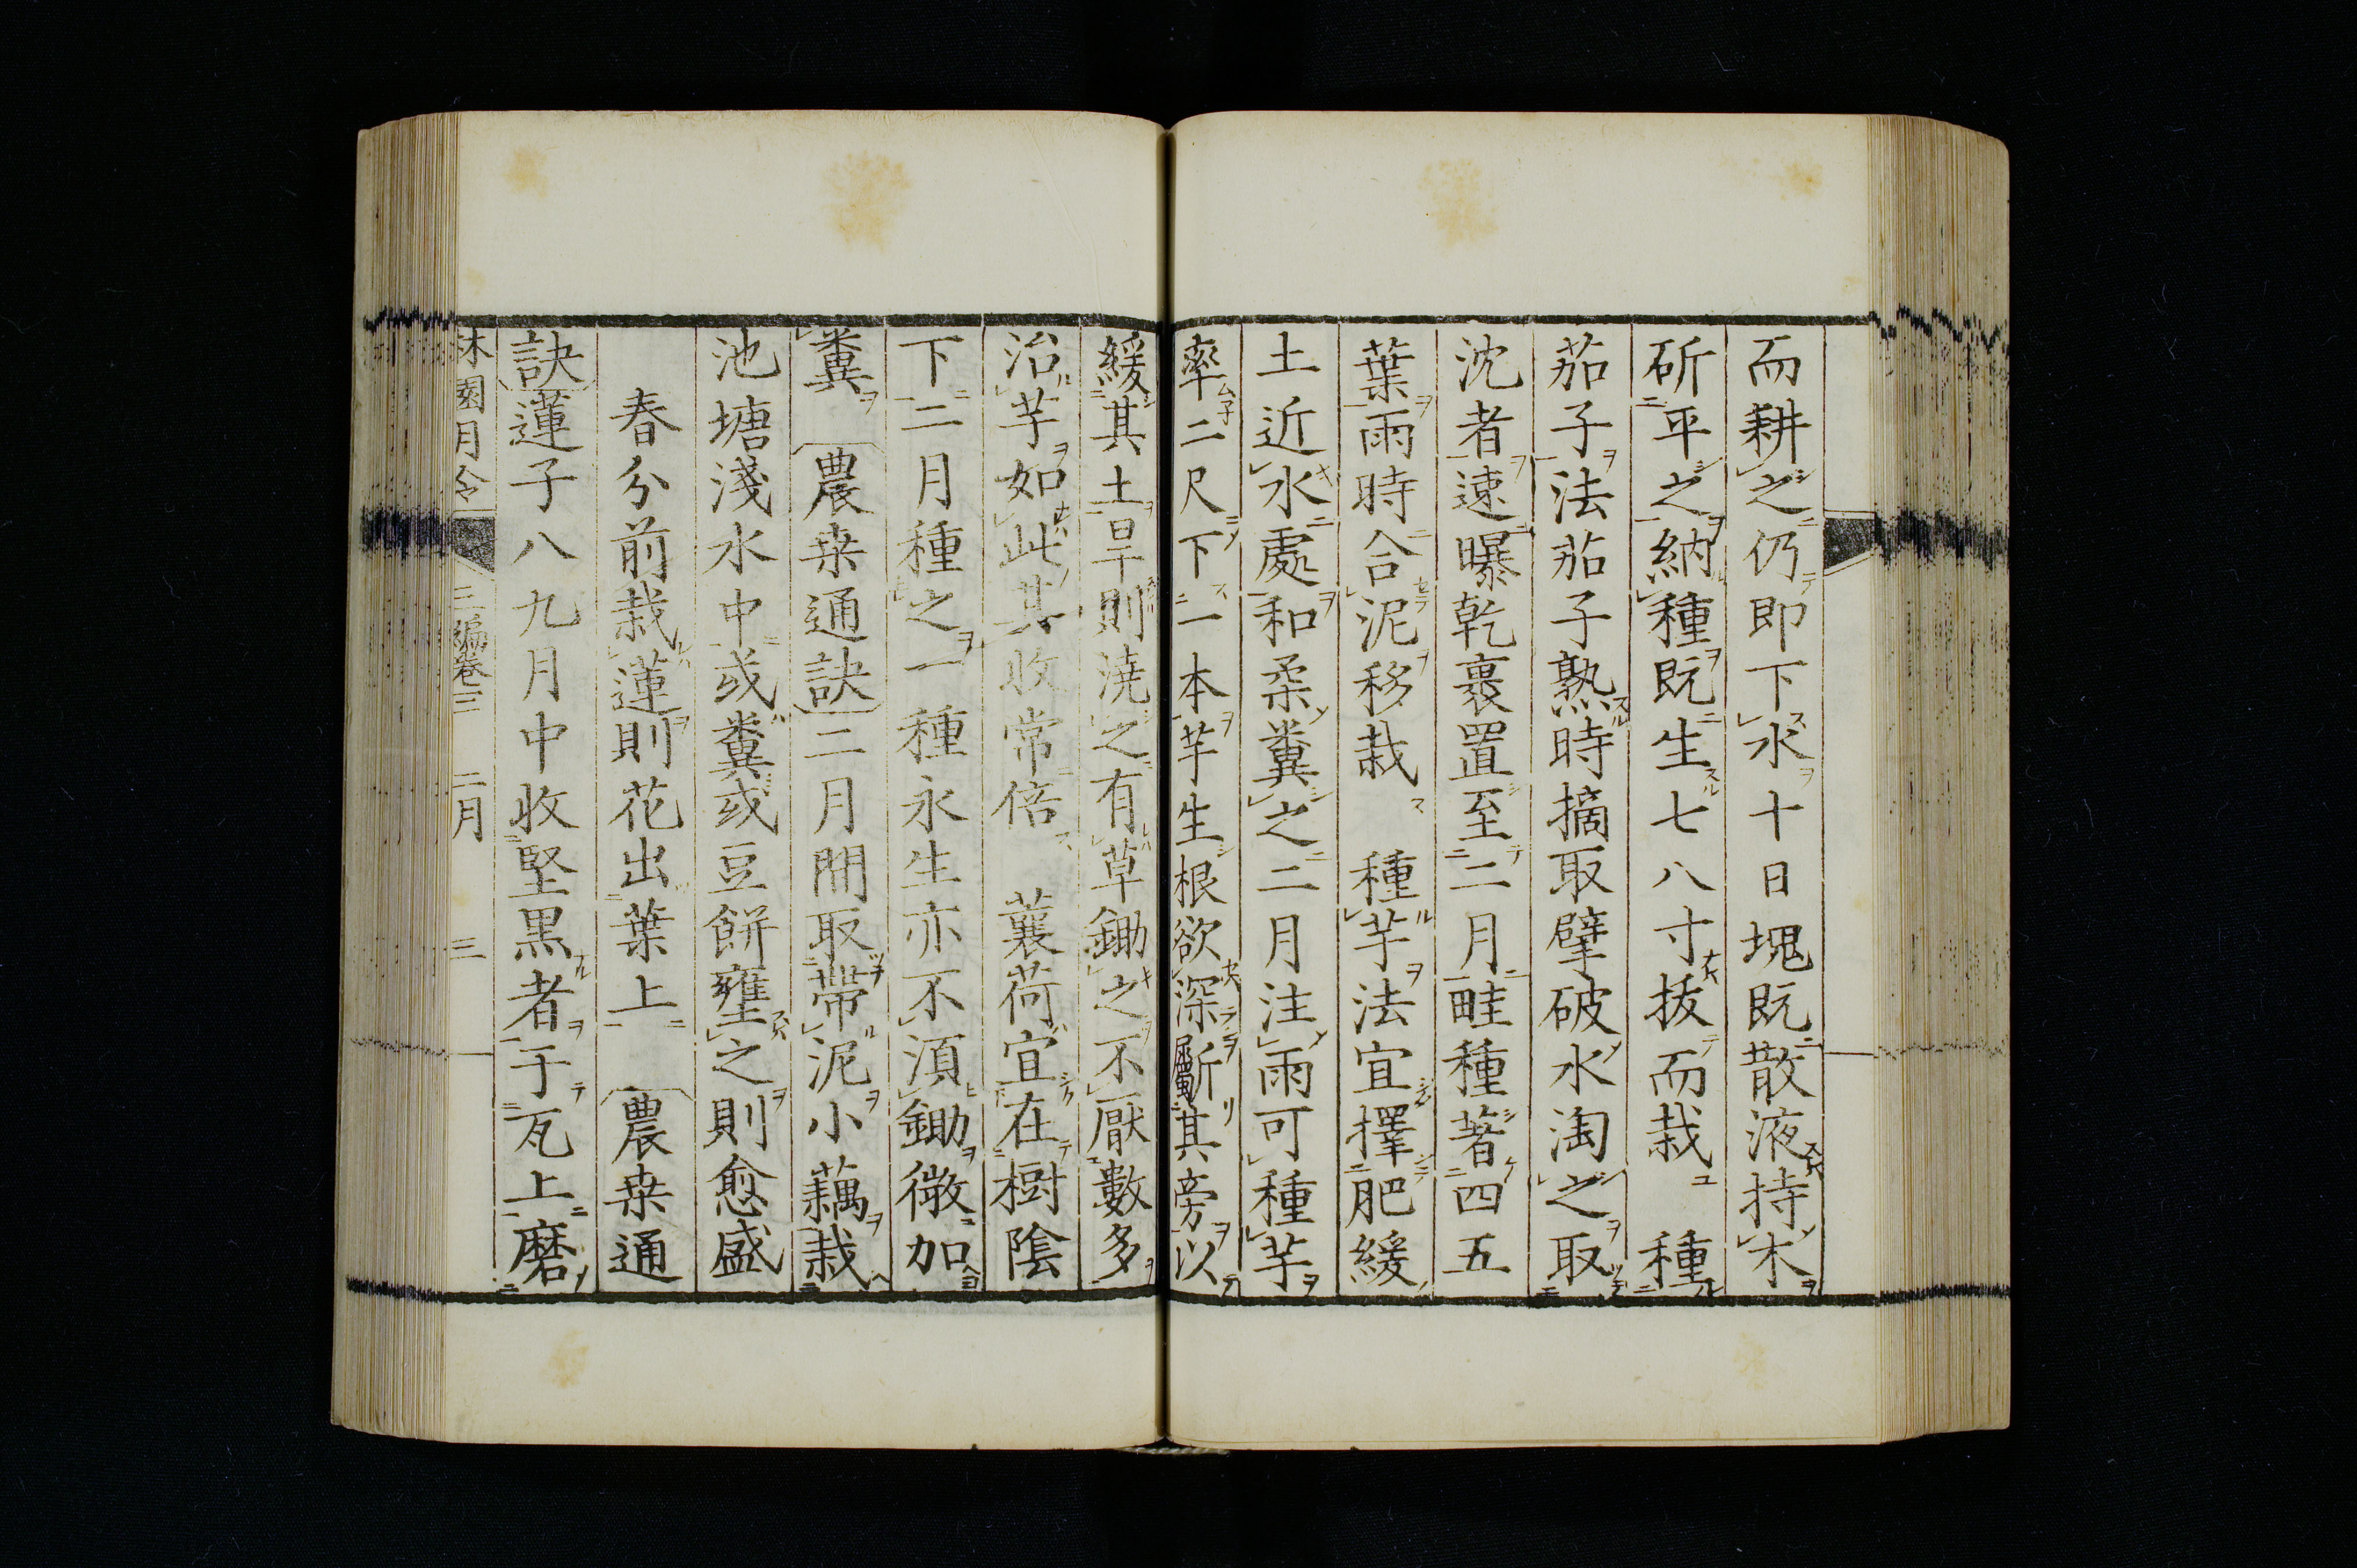 而耕之仍即下水十日塊既散液持木
斫平之納種既生七八寸拔而栽　種
茄子法茄子熟時摘取擘破水淘之取
沈者速曝乾裹置至二月畦種著四五
葉雨時合泥移栽　種芋法宜擇肥緩
土近水處和柔糞之二月注雨可種芋
率二尺下一本芋生根欲深斸其旁以
緩其土旱則澆之有草鋤之不厭數多
治芋如此其收常倍　蘘荷宜在樹陰
下二月種之一種永生亦不須鋤微加
糞　農桒通訣二月間取帶泥小藕栽
池塘淺水中或糞或豆餅壅之則愈盛
春分前栽蓮則花出葉上　農桒通
訣蓮子八九月中收堅黒者于瓦上磨
林園月令　三編卷三　二月　三